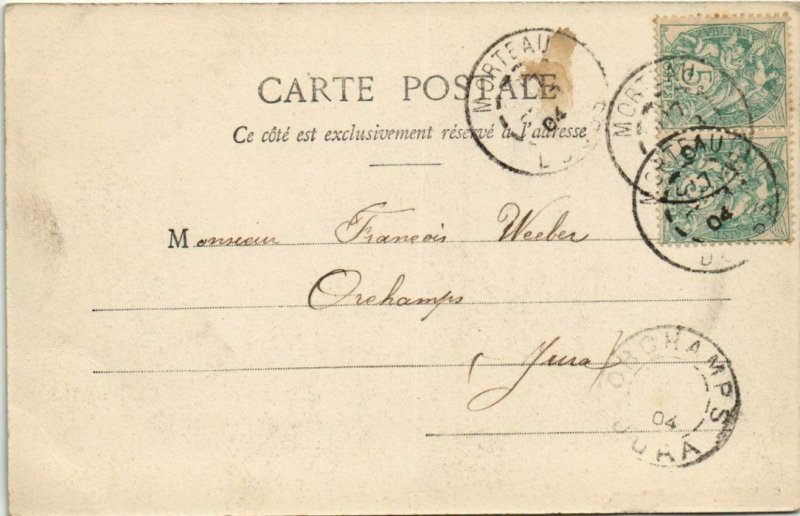 CARTE POSTALE
Ce côté est exclusivement réservé à l'adresse
Monsieur François Weeber
Orchamps
(Jura)
MORTEAU
04
DOUBS
MORTEAU
5
MORTEAU
04
DOUBS
ORCHAMPS
04
JURA